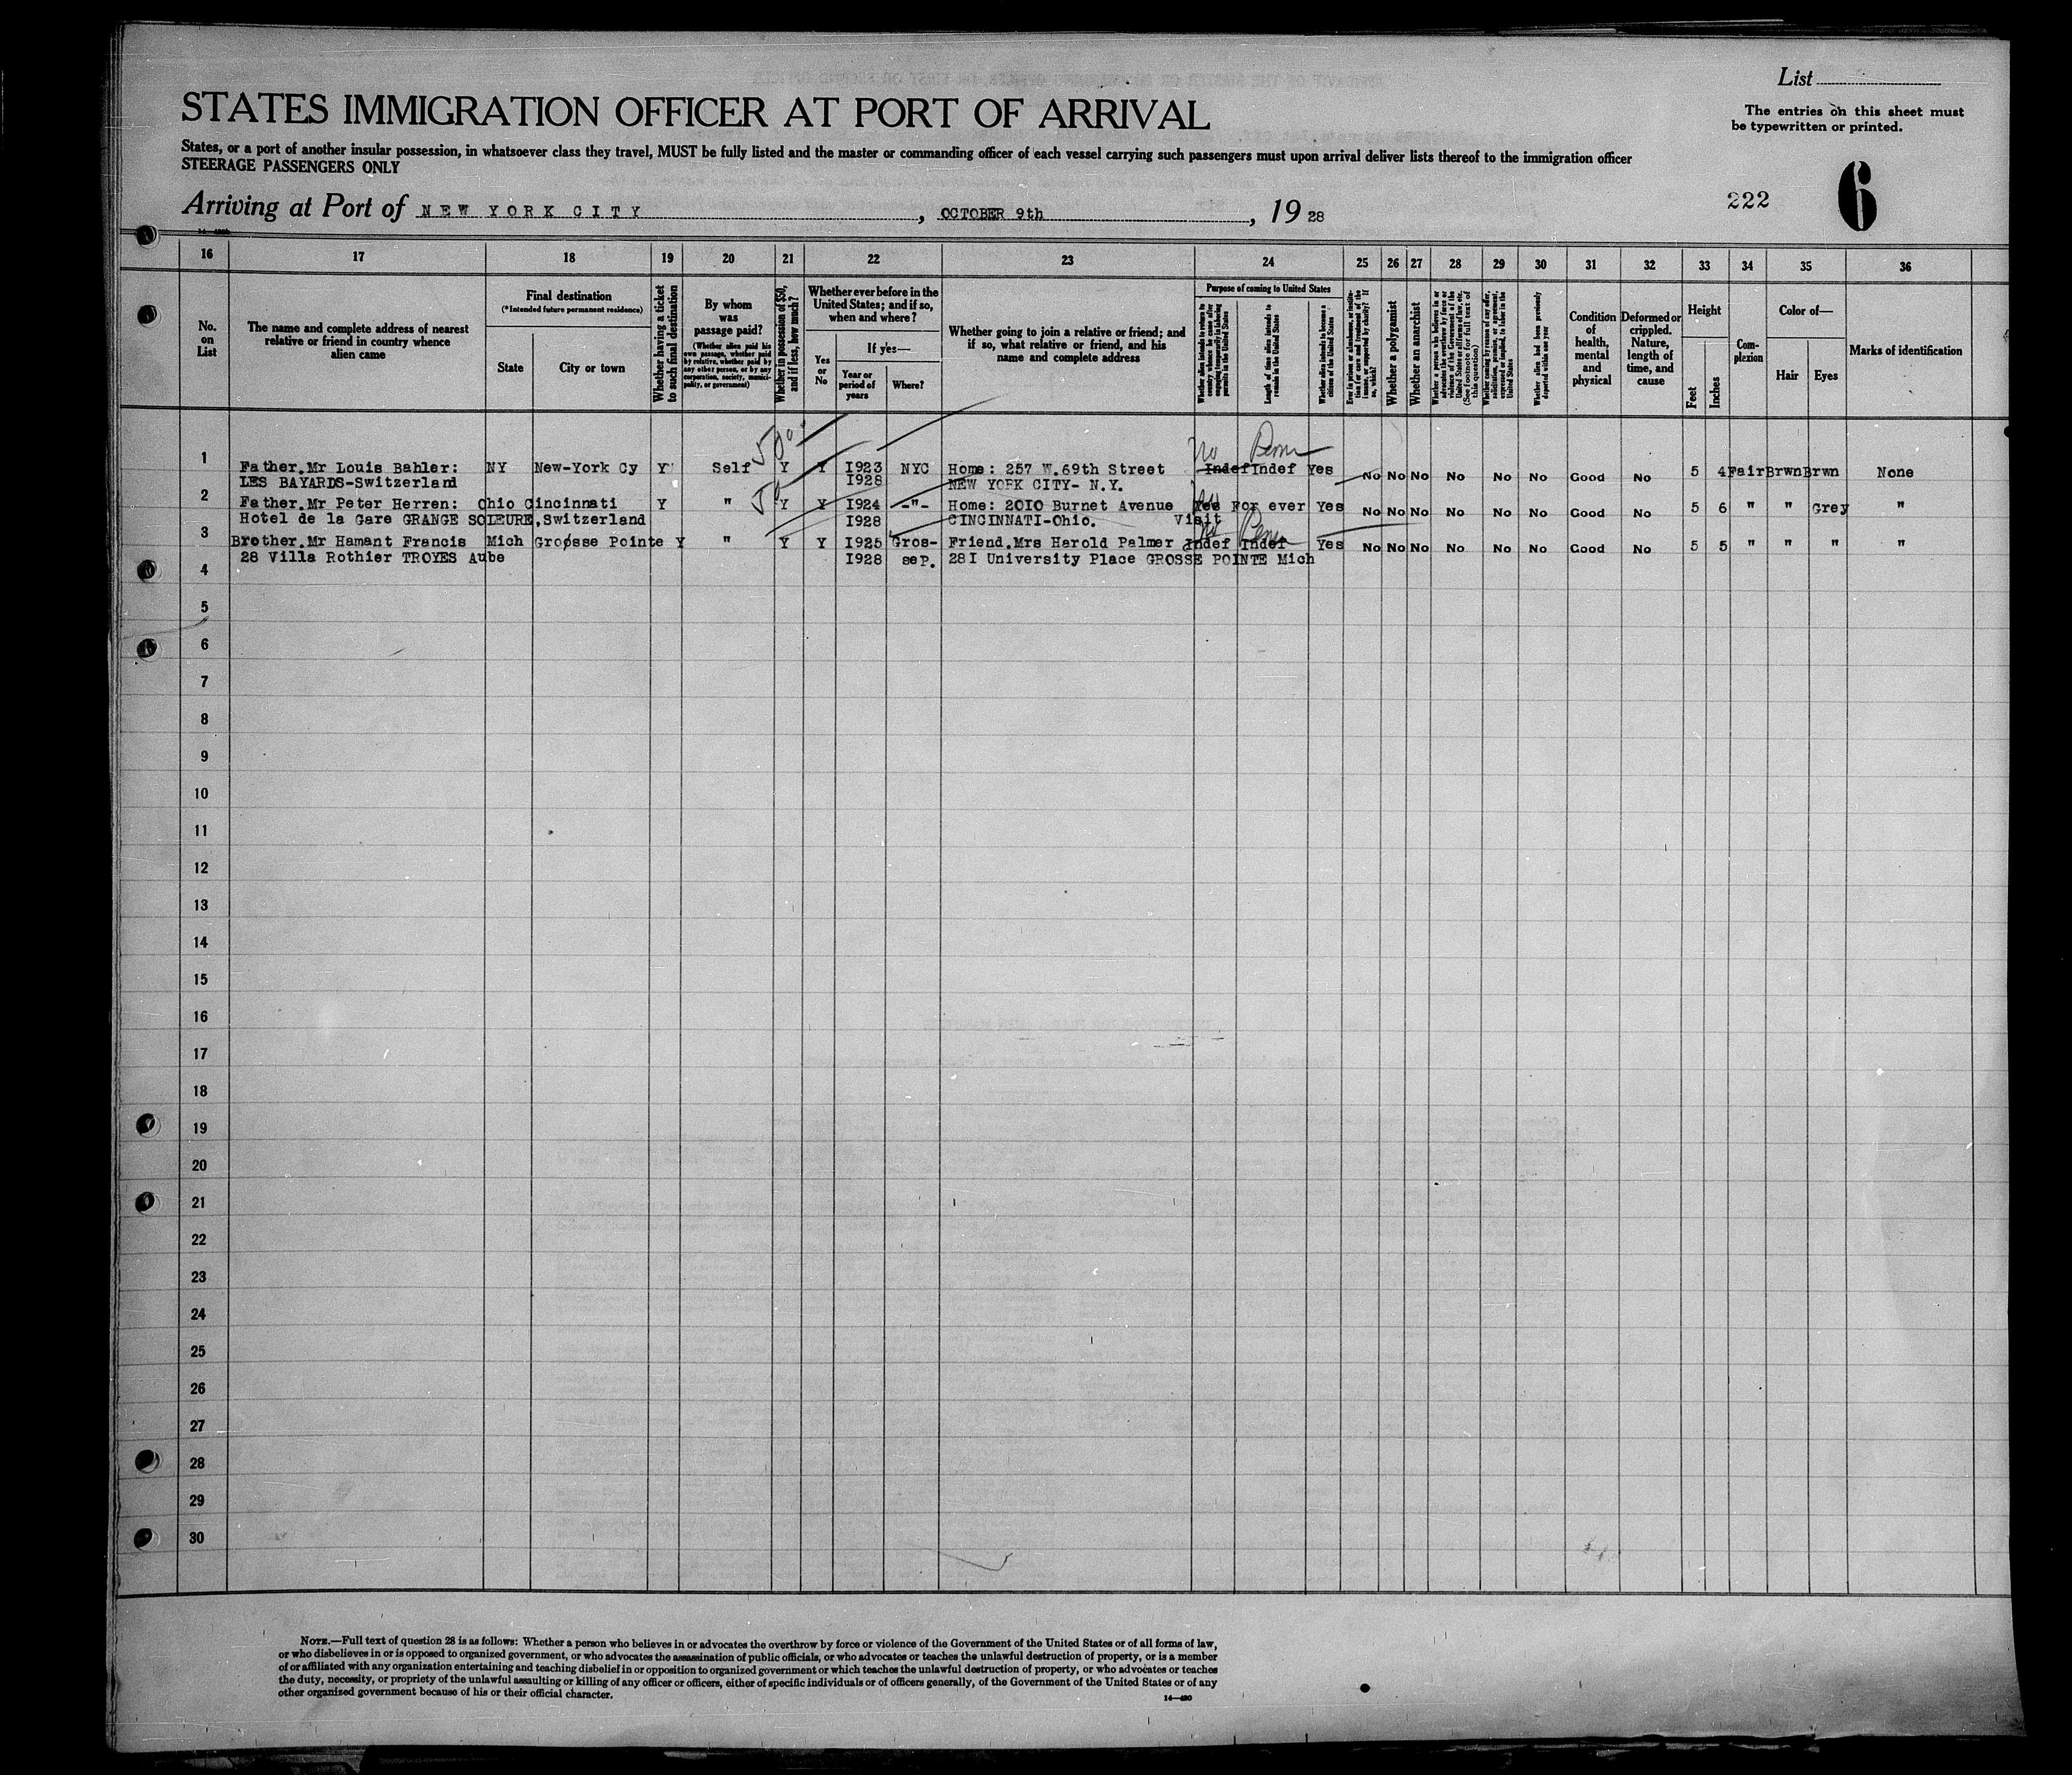 List
STATES IMMIGRATION OFFICER AT PORT OF ARRIVAL
The entries on this sheet must
be typewritten or printed.
States, or a port of another insular possession, in whatsoever class they travel, MUST be fully listed and the master or commanding officer of each vessel carrying such passengers must upon arrival deliver lists thereof to the immigration officer
STEERAGE PASSENGERS ONLY
222 6
Arriving at Port of NEW YORK CITY, OCTOBER 9th, 19 28
16 17 18 19 20 21 22 23 24 25 26 27 28 29 30 31 32 33 34 35 36
No. on List
The name and complete address of nearest relative or friend in country whence alien came
Final destination
(*Intended future permanent residence)
State
City or town
Whether having a ticket to such final destination
By whom was passage paid?
(Whether alien paid his own passage, whether paid by relative, whether paid by any other person, or by any corporation, society, municipality, or government)
Whether in possession of $50, and if less, how much?
Whether ever before in the United States; and if so, when and where?
Yes or No
If yes—
Year or period of years
Where?
Whether going to join a relative or friend; and if so, what relative or friend, and his name and complete address
Purpose of coming to United States
Whether alien intends to return to country whence he came after engaging temporarily in laboring pursuits in the United States
Length of time alien intends to remain in the United States
Whether alien intends to become a citizen of the United States
Ever in prison or almshouse, or institution for care and treatment of the insane, or supported by charity? If so, which?
Whether a polygamist
Whether an anarchist
Whether a person who believes in or advocates the overthrow by force or violence of the Government of the United States or all forms of law, etc. (See footnote for full text of this question)
Whether coming by reason of any offer, solicitation, promise, or agreement, expressed or implied, to labor in the United States
Whether alien had been previously deported within one year
Condition of health, mental and physical
Deformed or crippled. Nature, length of time, and cause
Height
Feet
Inches
Complexion
Color of—
Hair
Eyes
Marks of identification
50
No Perm
1 Father.Mr Louis Bahler: NY New-York Cy Y Self Y Y I923 NYC Home: 257 W.69th Street Indef Indef Yes No No No No No No Good No 5 4 Fair Brwn Brwn None
LES BAYARDS-Switzerland I928 NEW YORK CITY- N.Y.
2 Father.Mr Peter Herren: Ohio Cincinnati Y " 50 Y Y I924 -"- Home: 20I0 Burnet Avenue Yes For ever Yes No No No No No No Good No 5 6 " " Grey "
Hotel de la Gare GRANGE SOLEURE,Switzerland I928 CINCINNATI-Ohio. Visit
No Perm
3 Brother.Mr Hamant Francis Mich Grosse Pointe Y " Y Y I925 Gros- Friend.Mrs Harold Palmer Indef Indef Yes No No No No No No Good No 5 5 " " " "
28 Villa Rothier TROYES Aube I928 sep. 28I University Place GROSSE POINTE Mich
4
5
6
7
8
9
10
11
12
13
14
15
16
17
18
19
20
21
22
23
24
25
26
27
28
29
30
NOTE.—Full text of question 28 is as follows: Whether a person who believes in or advocates the overthrow by force or violence of the Government of the United States or of all forms of law,
or who disbelieves in or is opposed to organized government, or who advocates the assassination of public officials, or who advocates or teaches the unlawful destruction of property, or is a member
of or affiliated with any organization entertaining and teaching disbelief in or opposition to organized government or which teaches the unlawful destruction of property, or who advocates or teaches
the duty, necessity, or propriety of the unlawful assaulting or killing of any officer or officers, either of specific individuals or of officers generally, of the Government of the United States or of any
other organized government because of his or their official character.
14—490